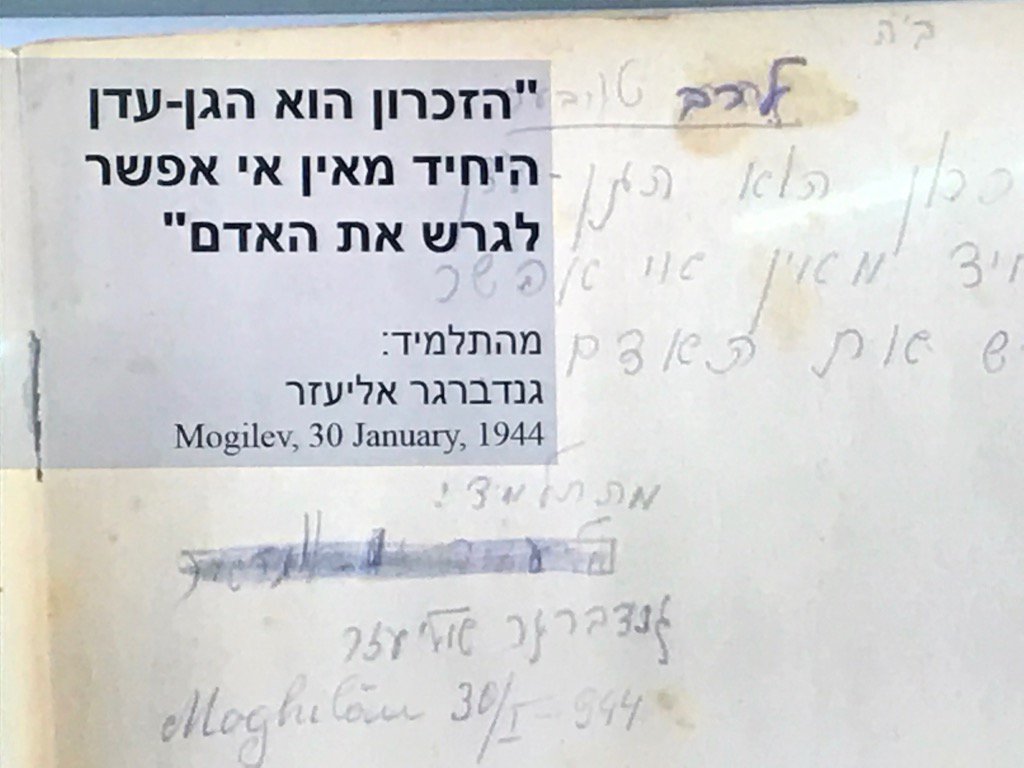 "הזכרון הוא הגן-עדן
היחיד מאין אי אפשר
לגרש את האדם"
מהתלמיד:
גנדברגר אליעזר
Mogilev, 30 January, 1944
ב"ה
לחבר
כרון הוא הגן-
חיד מאין אוי אפשר
ש את האדם
מהתלמיד:
גנדברגר אליעזר
Moghilău 30/I-944